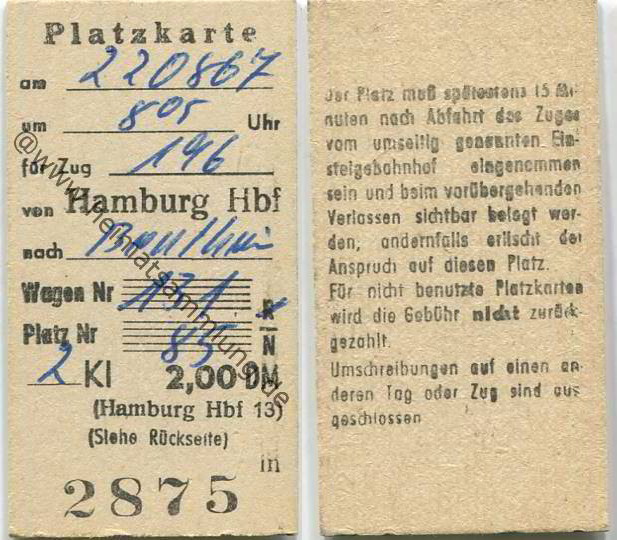 Platzkarte
am 220867
um 8⁰⁵ Uhr
für Zug 196
von Hamburg Hbf
nach Bentheim
Wagen Nr 131
Platz Nr 85 R
N
2 Kl 2,00 DM
(Hamburg Hbf 13)
(Siehe Rückseite)
in
2875
@www.heimatsammlung.de
Der Platz muß spätestens 15 Mi-
nuten nach Abfahrt des Zuges
vom umseitig genannten Ein-
steigebahnhof eingenommen
sein und beim vorübergehenden
Verlassen sichtbar belegt wer-
den, andernfalls erlischt der
Anspruch auf diesen Platz.
Für nicht benutzte Platzkarten
wird die Gebühr nicht zurück-
gezahlt.
Umschreibungen auf einen an-
deren Tag oder Zug sind aus
geschlossen